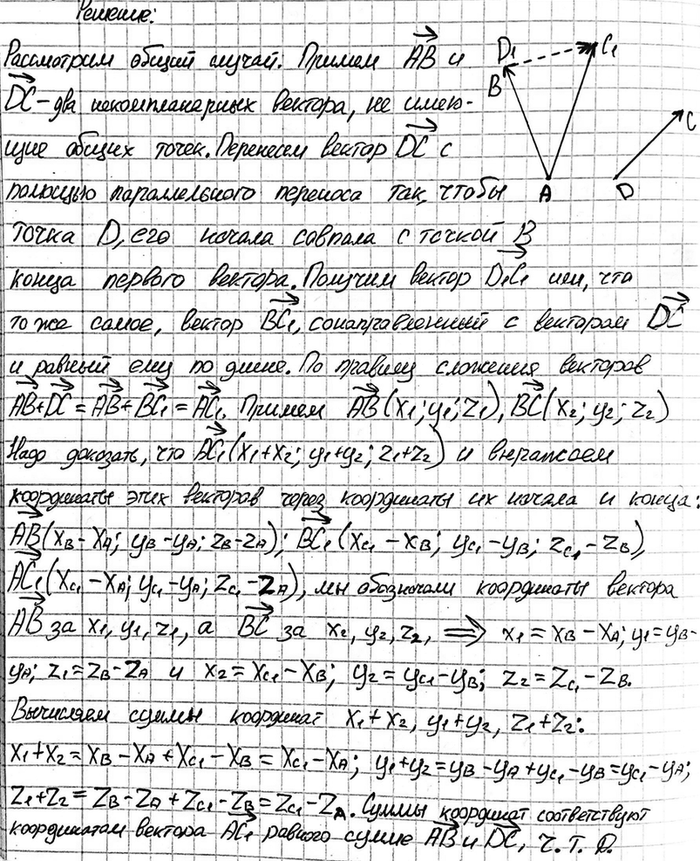 Решение:
Рассмотрим общий случай. Примем AB и
DC - два некомпланарных вектора, не имею-
щие общих точек. Перенесем вектор DC с
помощью параллельного переноса так, чтобы
точка D, его начала совпала с точкой B
конца первого вектора. Получим вектор D₁C₁ или, что
то же самое, вектор BC₁, сонаправленный с вектором DC
и равный ему по длине. По правилу сложения векторов
AB+DC = AB+BC₁ = AC₁. Примем AB(x₁; y₁; z₁), BC(x₂; y₂; z₂)
Надо доказать, что BC₁(x₁+x₂; y₁+y₂; z₁+z₂) и выражаем
координаты этих векторов через координаты их начала и конца:
AB(xB-xA; yB-yA; zB-zA); BC₁(xC₁-xB; yC₁-yB; zC₁-zB),
AC₁(xC₁-xA; yC₁-yA; zC₁-zA), мы обозначали координаты вектора
AB за x₁, y₁, z₁, а BC за x₂, y₂, z₂, ⟹ x₁=xB-xA; y₁=yB-
yA; z₁=zB-zA и x₂=xC₁-xB; y₂=yC₁-yB; z₂=zC₁-zB.
Вычисляем суммы координат x₁+x₂, y₁+y₂, z₁+z₂:
x₁+x₂=xB-xA+xC₁-xB=xC₁-xA; y₁+y₂=yB-yA+yC₁-yB=yC₁-yA;
z₁+z₂=zB-zA+zC₁-zB=zC₁-zA. Суммы координат соответствуют
координатам вектора AC₁ равного сумме AB и DC, ч.т.д.
D₁
C₁
B
C
A
D